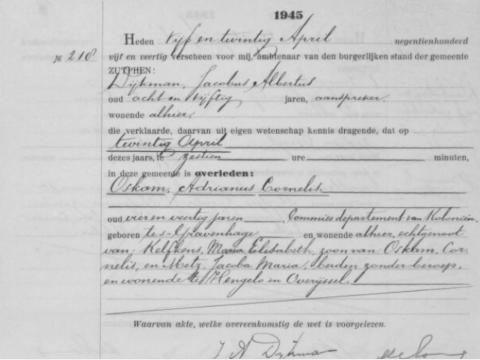 1945
Heden vijf en twintig April negentienhonderd
No 210 vijf en veertig verscheen voor mij, ambtenaar van den burgerlijken stand der gemeente
ZUTPHEN:
Dijkman, Jacobus Albertus
oud acht en vijftig jaren, aanspreker
wonende alhier.
die verklaarde, daarvan uit eigen wetenschap kennis dragende, dat op
twintig April
dezes jaars, te zestien ure minuten,
in deze gemeente is overleden:
Oskam, Adrianus Cornelis
oud vier en veertig jaren, Commies departement van Koloniën
geboren te 's-Gravenhage en wonende alhier, echtgenoot
van Kelfkens, Maria Elisabeth, zoon van Oskam, Cor-
nelis, en Metz, Jacoba Maria, beiden zonder beroep,
en wonende te Hengelo en Overijssel.
Waarvan akte, welke overeenkomstig de wet is voorgelezen.
J A Dijkman